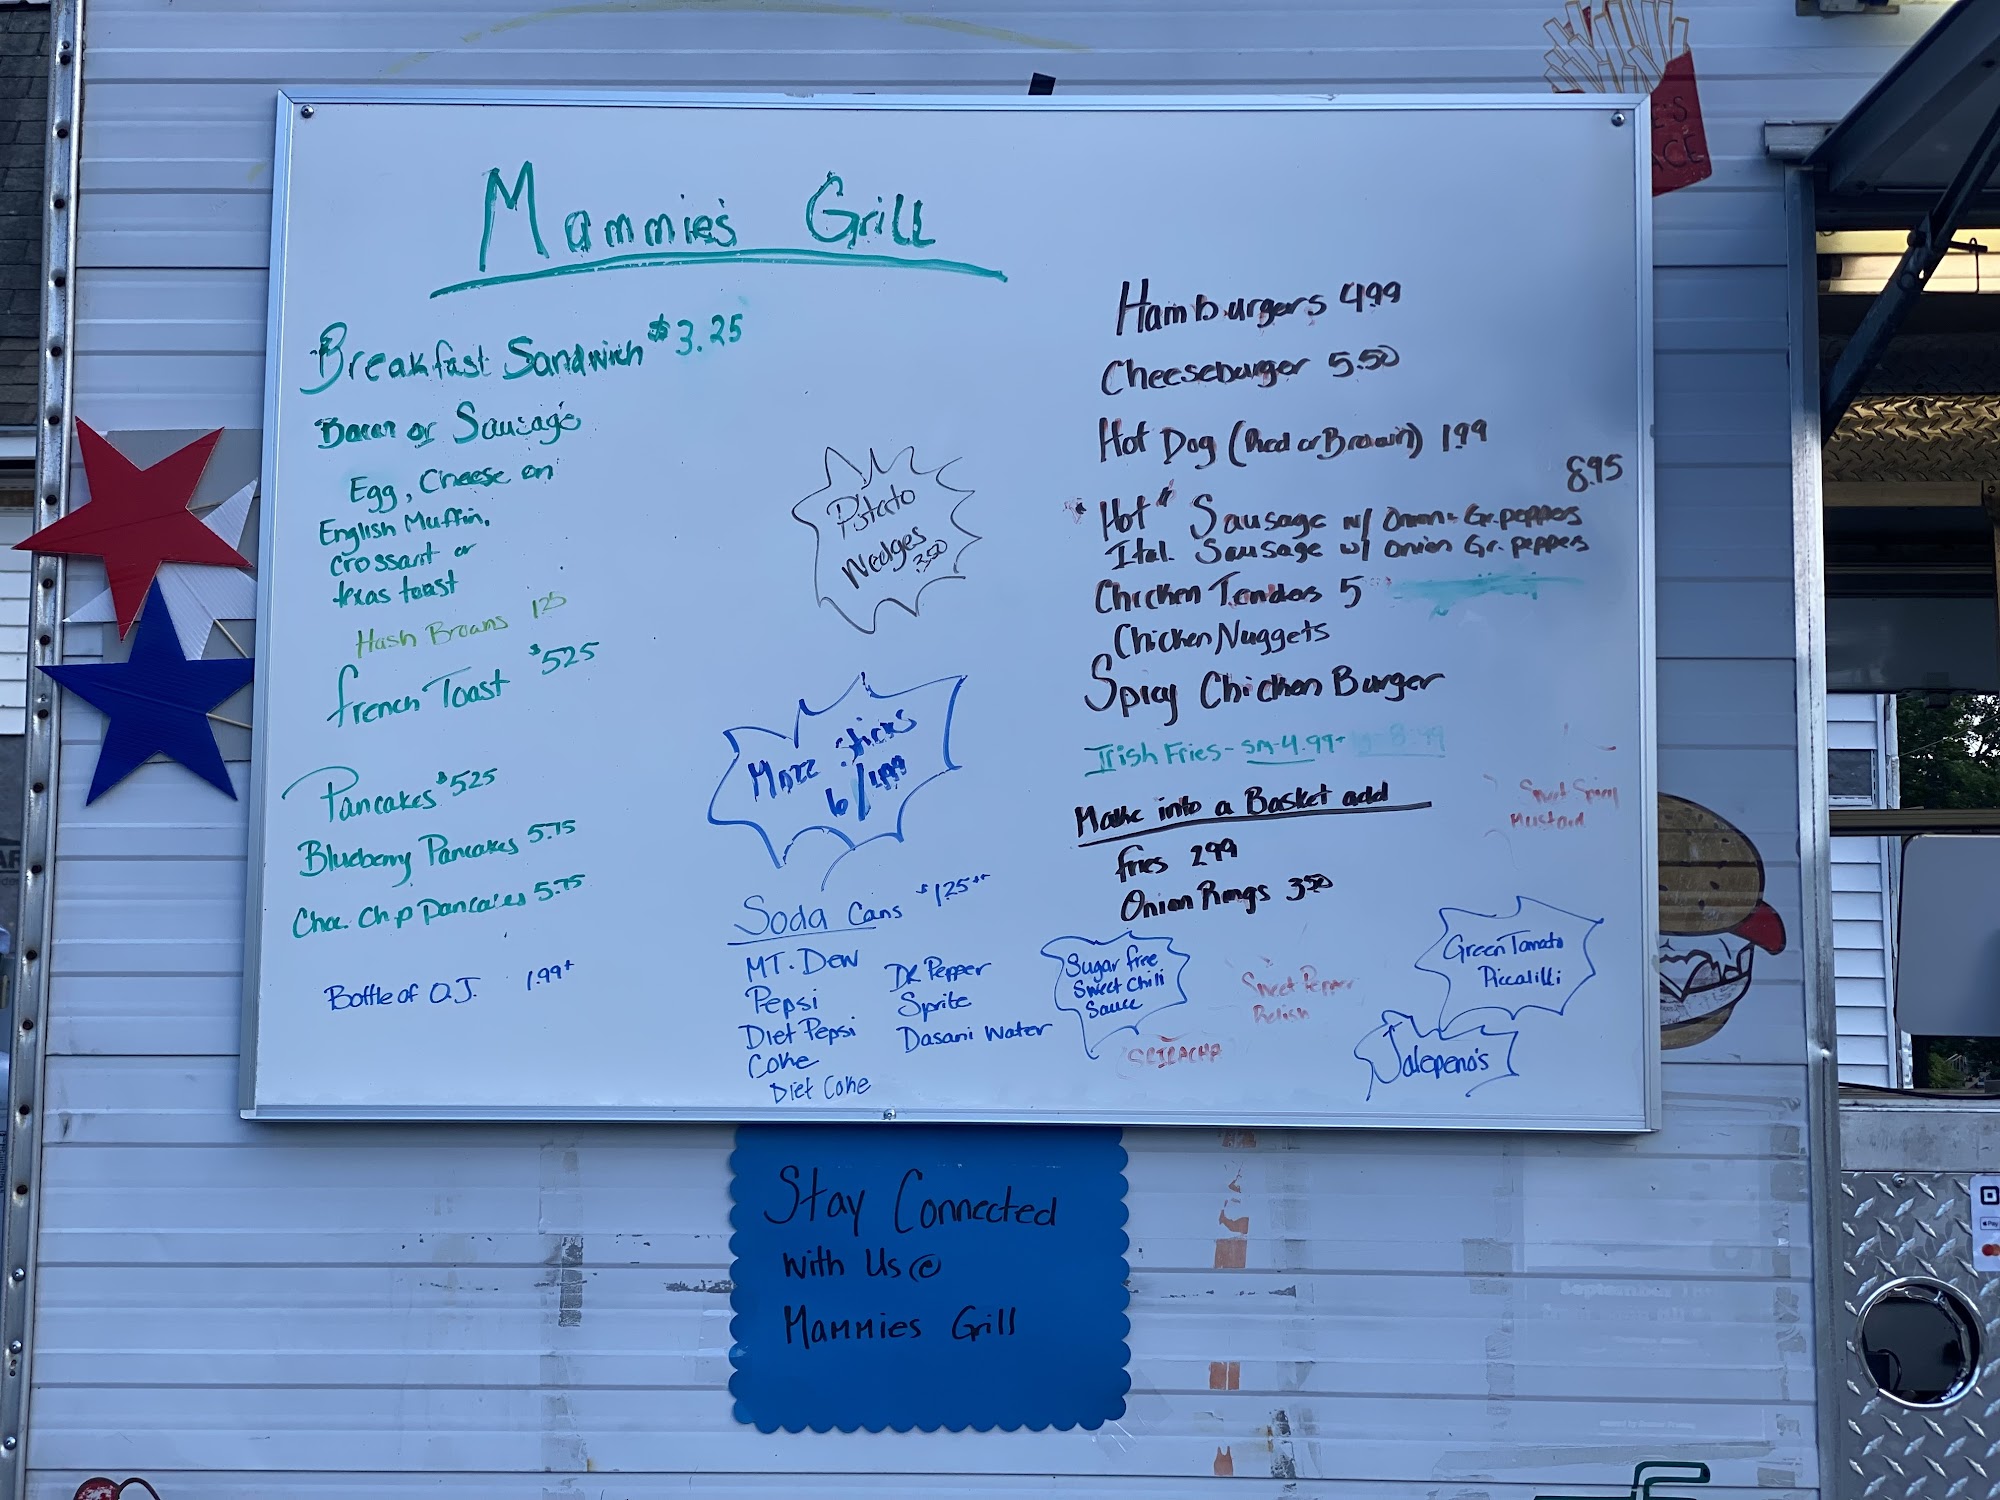 Mammie's Grill
Breakfast Sandwich $3.25
Bacon or Sausage
Egg, Cheese on
English Muffin,
crossant or
texas toast
Hash Browns 125
french Toast $525
Pancakes $525
Blueberry Pancakes 5.75
Choc. Chip Pancakes 5.75
Bottle of O.J. 1.99+
Potato
Wedges
350
Mozz Sticks
6/499
Soda Cans $1.25
MT. Dew
Pepsi
Diet Pepsi
Coke
Diet Coke
Dr. Pepper
Sprite
Dasani Water
Hamburgers 499
Cheeseburger 5.50
Hot Dog (Red or Brown) 199
8.95
"Hot" Sausage w/ Onion + Gr. peppers
Ital. Sausage w/ onion Gr. peppers
Chicken Tenders 5
Chicken Nuggets
Spicy Chicken Burger
Irish Fries - sm - 4.99+ lg - 8.99
Make into a Basket add
fries 299
Onion Rings 350
Sweet Spicy
Mustard
Sugar free
Sweet Chili
Sauce
Sweet Pepper
Relish
SRIRACHA
Green Tomato
Piccalilli
Jalepeno's
Stay Connected
with Us @
Mammies Grill